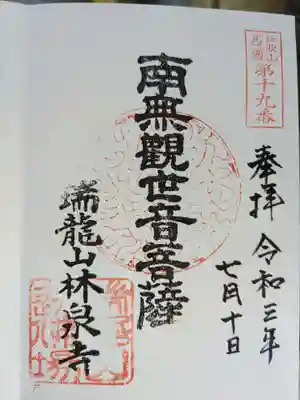 西國第十九番
奉拝 令和三年
七月十日
南無觀世音菩薩
瑞龍山林泉寺